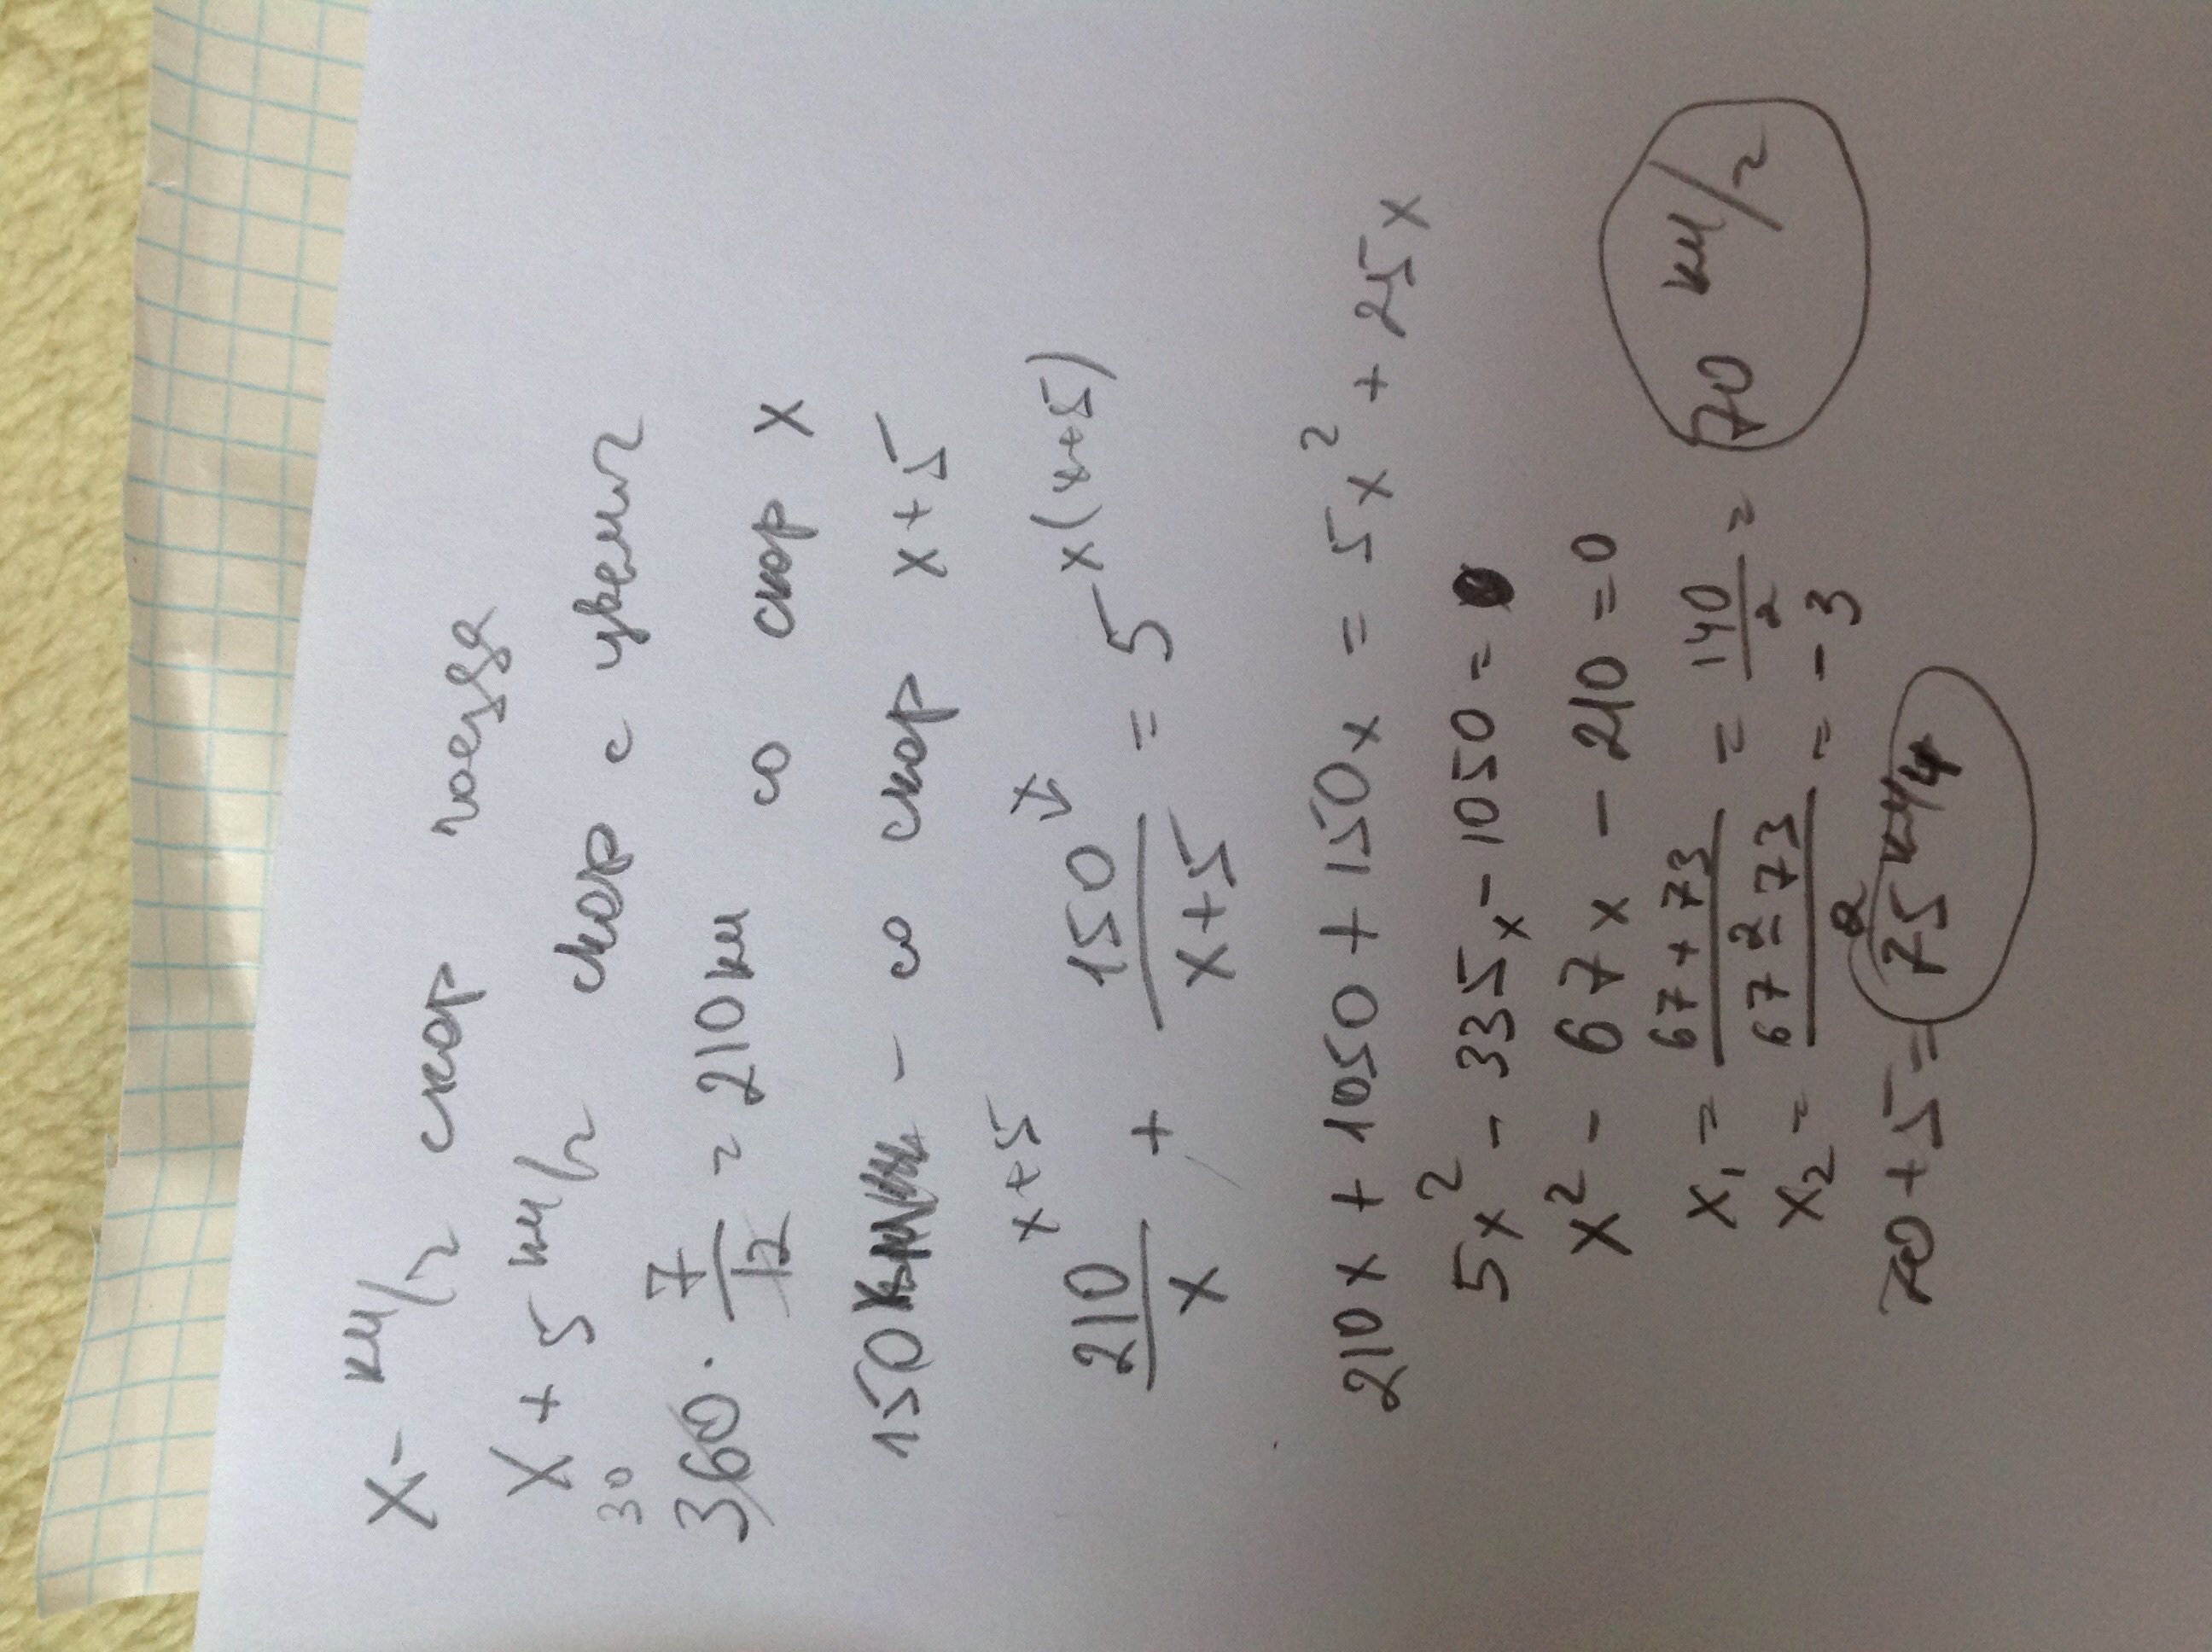 x - км/ч скор поезда
x + 5 км/ч скор с увелич
30
360 · 7/12 = 210 км со скор x
150 - со скор x + 5
x+5 x x(x+5)
210/x + 150/x+5 = 5
210x + 1050 + 150x = 5x² + 25x
5x² - 335x - 1050 = 0
x² - 67x - 210 = 0
x₁ = 67 + 73/2 = 140/2 = 70 км/ч
x₂ = 67 - 73/2 = - 3
70 + 5 = 75 км/ч